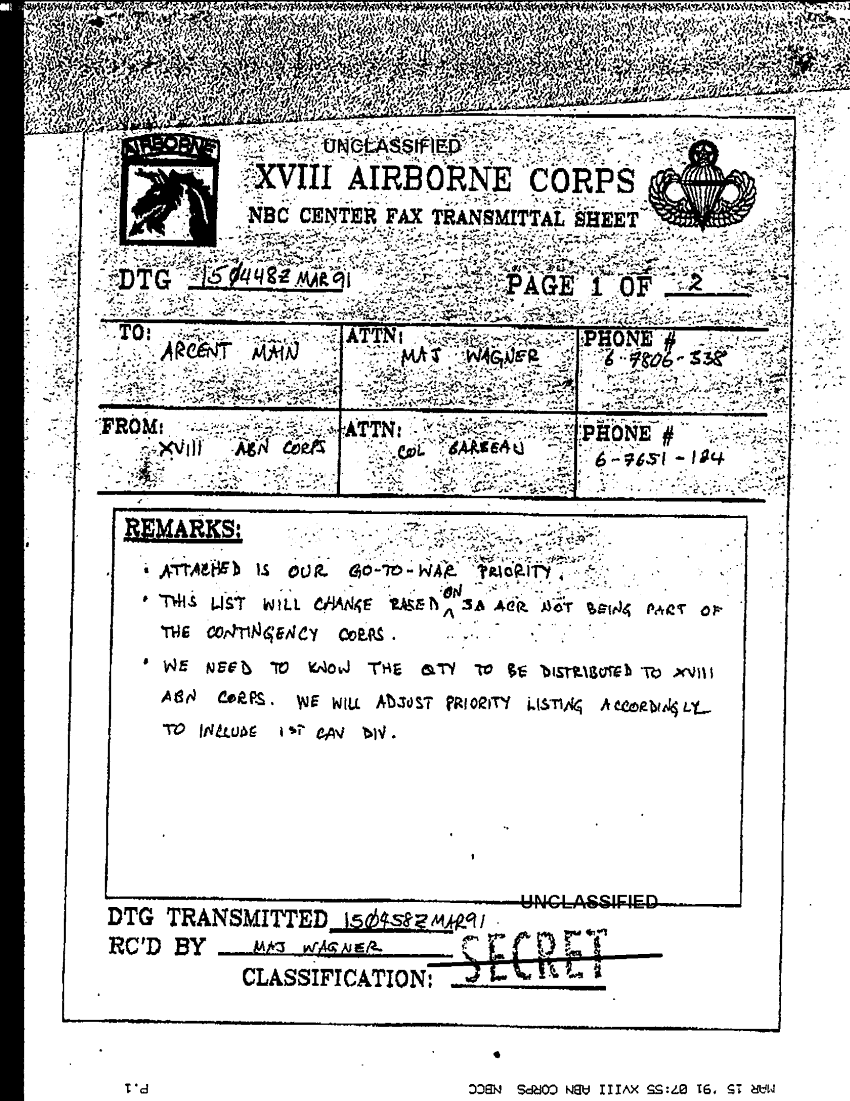 AIRBORNE
UNCLASSIFIED
XVIII AIRBORNE CORPS
NBC CENTER FAX TRANSMITTAL SHEET
DTG 150448Z MAR91
PAGE 1 OF 2
TO: ARCENT MAIN
ATTN: MAJ WAGNER
PHONE # 6-7806-338
FROM: XVIII ABN CORPS
ATTN: COL
PHONE # 6-7651-184
REMARKS:
• ATTACHED IS OUR GO-TO-WAR PRIORITY.
• THIS LIST WILL CHANGE BASED ON ACR NOT BEING PART OF
THE CONTINGENCY CORPS.
• WE NEED TO KNOW THE QTY TO BE DISTRIBUTED TO XVIII
ABN CORPS. WE WILL ADJUST PRIORITY LISTING ACCORDINGLY
TO INCLUDE 1ST CAV DIV.
UNCLASSIFIED
DTG TRANSMITTED 150458Z MAR91
RC'D BY MAJ WAGNER
CLASSIFICATION: SECRET
MAR 15 '91 07:55 XVIII ABN CORPS NBCC
P.1